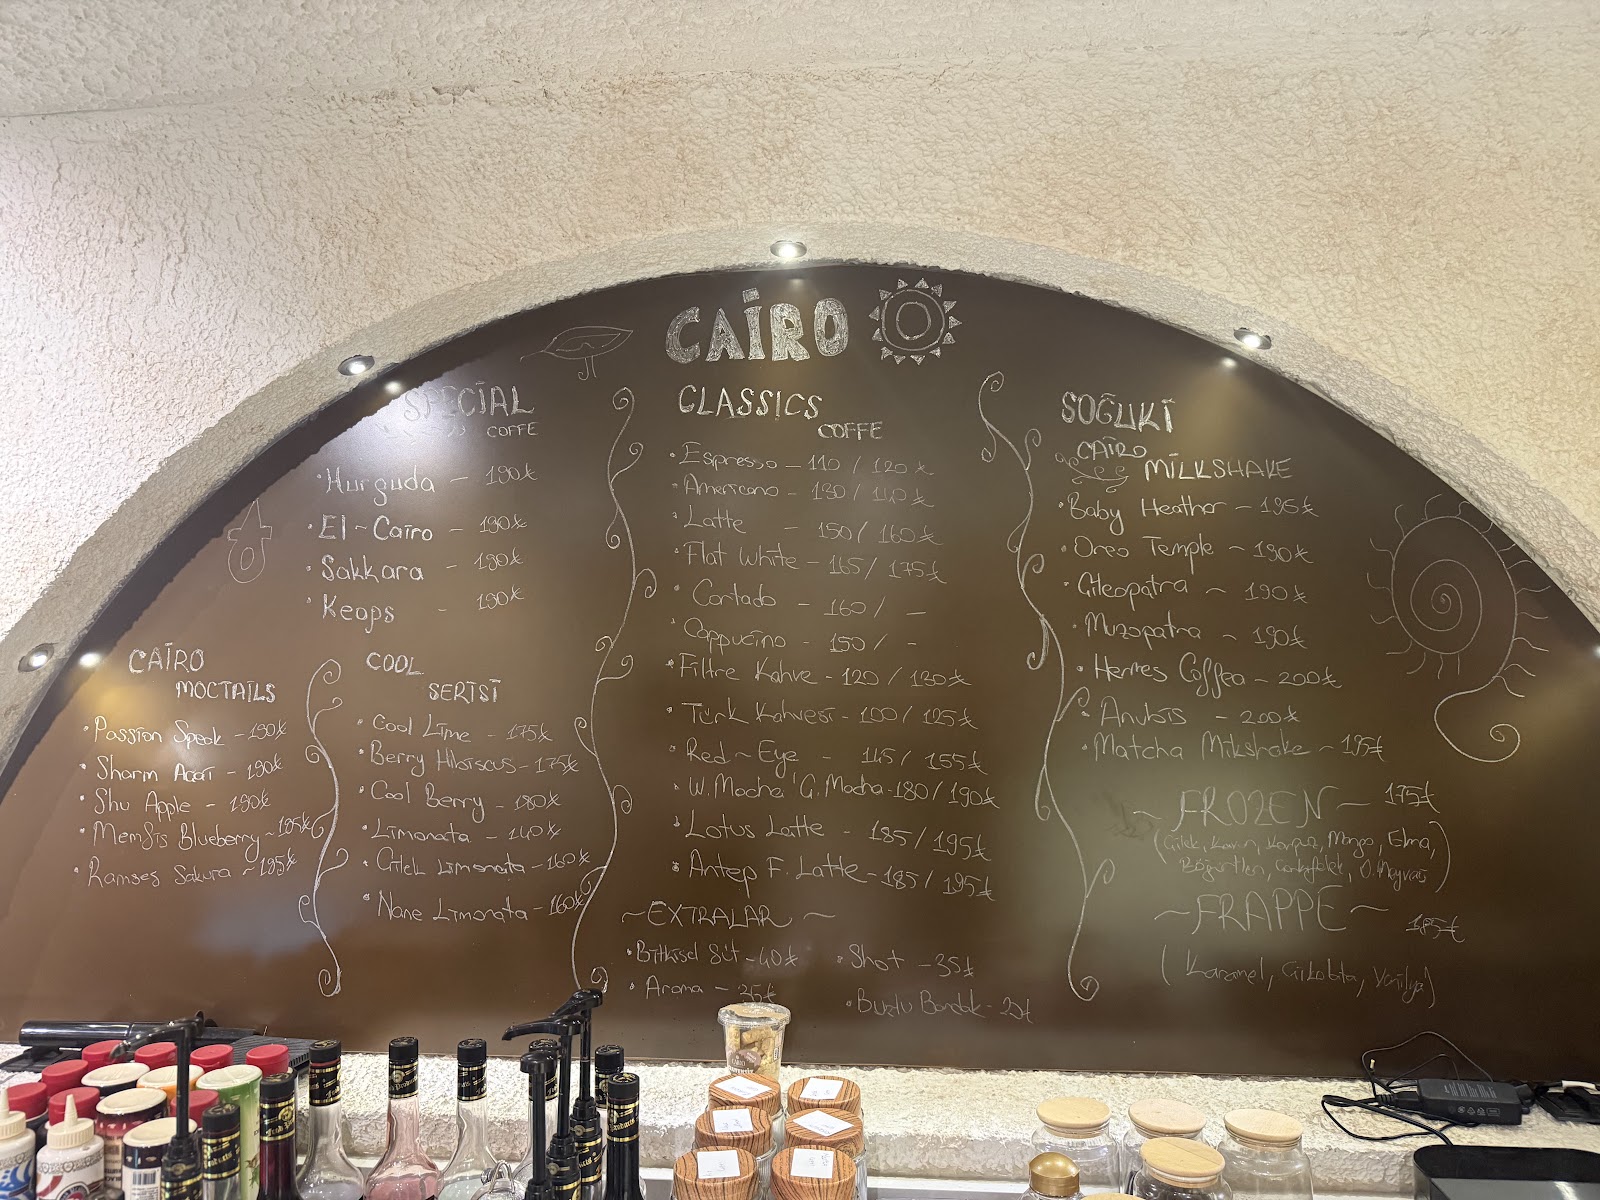 CAİRO
SPECİAL
COFFE
Hurguda - 190₺
• El-Cairo - 190₺
• Sakkara - 190₺
• Keops - 190₺
CAİRO
MOCTAİLS
• Passion Speak - 190₺
• Sharm Acai - 190₺
• Shu Apple - 190₺
• Memfis Blueberry ~ 195₺
• Ramses Sakura ~ 195₺
COOL
SERİSİ
• Cool Lime - 175₺
• Berry Hibiscus - 175₺
• Cool Berry - 180₺
• Limonata - 140₺
• Çilek Limonata - 160₺
• Nane Limonata - 160₺
CLASSICS
COFFE
• Espresso - 110 / 120₺
• Americano - 130 / 140₺
• Latte - 150 / 160₺
• Flat White - 165 / 175₺
• Cortado - 160 / -
• Cappucino - 150 / -
• Filtre Kahve - 120 / 130₺
• Türk Kahvesi - 100 / 125₺
• Red-Eye - 145 / 155₺
• W. Mocha G. Mocha - 180 / 190₺
• Lotus Latte - 185 / 195₺
• Antep F. Latte - 185 / 195₺
~ EXTRALAR ~
• Bitkisel Süt - 40₺
• Aroma - 35₺
• Shot - 35₺
• Buzlu Bardak -
SOĞUKİ
CAİRO
MİLKSHAKE
• Baby Heathor - 195₺
• Oreo Temple ~ 190₺
• Cileopatra ~ 190₺
• Muzopatra ~ 190₺
• Hermes Coffea - 200₺
• Anubis - 200₺
• Matcha Milkshake ~ 195₺
~ FROZEN ~ 175₺
(Çilek, Kavun, Karpuz, Mango, Elma,
Böğürtlen, Çarkıfelek, O. Meyvası)
~ FRAPPE ~ 185₺
(Karamel, Çikolata, Vanilya)